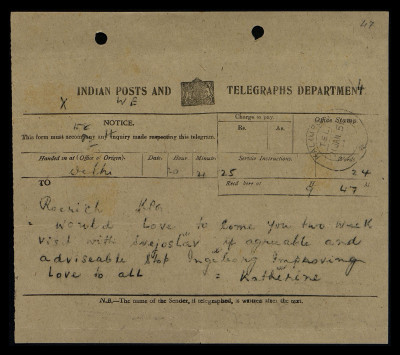 47
INDIAN POSTS AND TELEGRAPHS DEPARTMENT
X WE 4
NOTICE.
This form must accompany any inquiry made respecting this telegram.
Charge to pay
Office Stamp
Rs. As.
Handed in at (Office of Origin). Date. Hour Minute. Service Instructions.
Delhi 20 25 24
Recd here at 47
TO
Roerich KLG
Would Love to come you two week
visit with Svejoslav if agreeable and
adviseable Stop Ingeborg Improving
Love to all = Katherine
N.B.—The name of the Sender, if telegraphed, is written after the text.